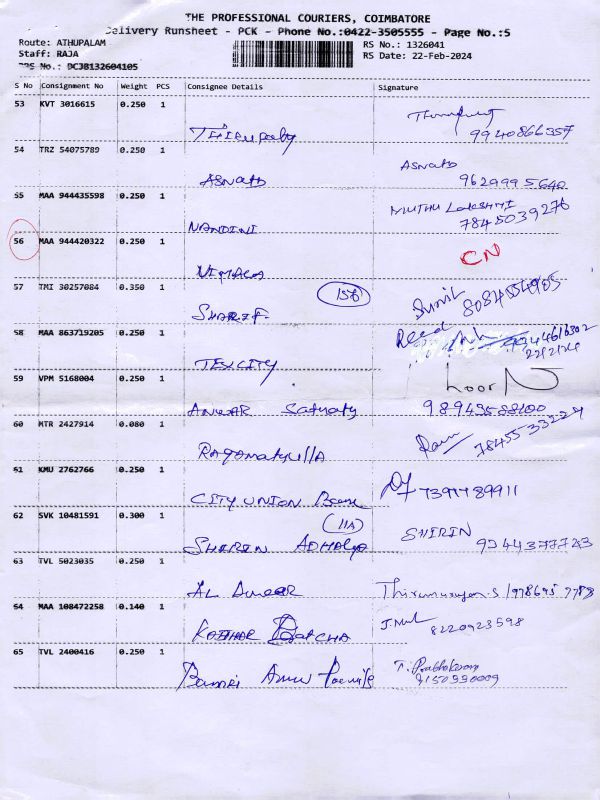 THE PROFESSIONAL COURIERS, COIMBATORE
Delivery Runsheet - PCK - Phone No.:0422-3505555 - Page No.:5
Route: ATHUPALAM
RS No.: 1326041
Staff: RAJA
RS Date: 22-Feb-2024
DRS No.: DCJB132604105
S No Consignment No Weight PCS Consignee Details Signature
53 KVT 3016615 0.250 1
9940866357
54 TRZ 54075789 0.250 1
ASNATD
ASNATD
9629995640
55 MAA 944435598 0.250 1
MUTHU LAKSHMI
7845039276
NANDINI
56 MAA 944420322 0.250 1
CN
NIRMALA
57 TMI 30257084 0.350 1
156
Sunil
8084554905
SHARIF
58 MAA 863719205 0.250 1
22/2/24
TEXCITY
59 VPM 5168004 0.250 1
Noor N
ANWAR
98943588100
60 MTR 2427914 0.080 1
Ram
7845533229
61 KMU 2762766 0.250 1
7397789911
CITY UNION Bank
62 SVK 10481591 0.300 1
(11A)
SHIRIN
9244377723
SHIRIN
63 TVL 5023035 0.250 1
AL Ameer
Thirumurugan.S
64 MAA 108472258 0.140 1
8220923598
KOTHAR BATCHA
65 TVL 2400416 0.250 1
T. Prabhakaran
9150990009